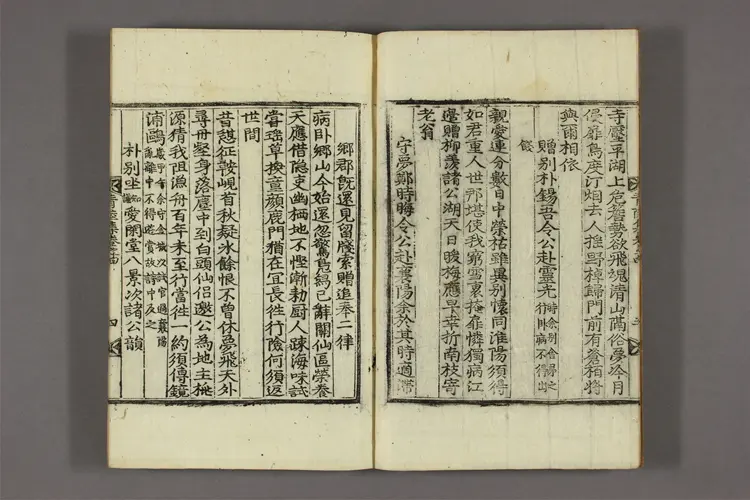 寺壓平湖上危簷勢欲飛塊清山萬俗夢冷月
侵扉鳥度汀烟去人推野棹歸門前有蒼栢將
與爾相依
贈別朴錫吾令公赴靈光
親愛連分數日中榮枯雖異別懷同淮陽須得
如君重人世那堪使我窮雪裏掩扉憐獨病江
邊贈柳羨諸公湖天日暖梅應早幸折南枝寄
老翁
守夢鄭時晦令公赴襄陽余於其時適滯
鄉郡旣還見留牋索贈追奉二律
病卧鄉山今始還忽驚鳧舄已辭關仙區榮養
天應借隐吏幽栖地不慳漸勅厨人疎海味試
當瑶草換童顔鹿門猶在冝長徃行險何須返
世間
昔愁征鞍峴首秋凝氷餘恨不曾休夢飛天外
尋丹壑身落塵中到白頭仙侶邀公為地主桃
源猜我阻漁舟百年未至行當徃一約須傳鏡
浦鷗
朴別坐愛閑堂八景次諸公韻